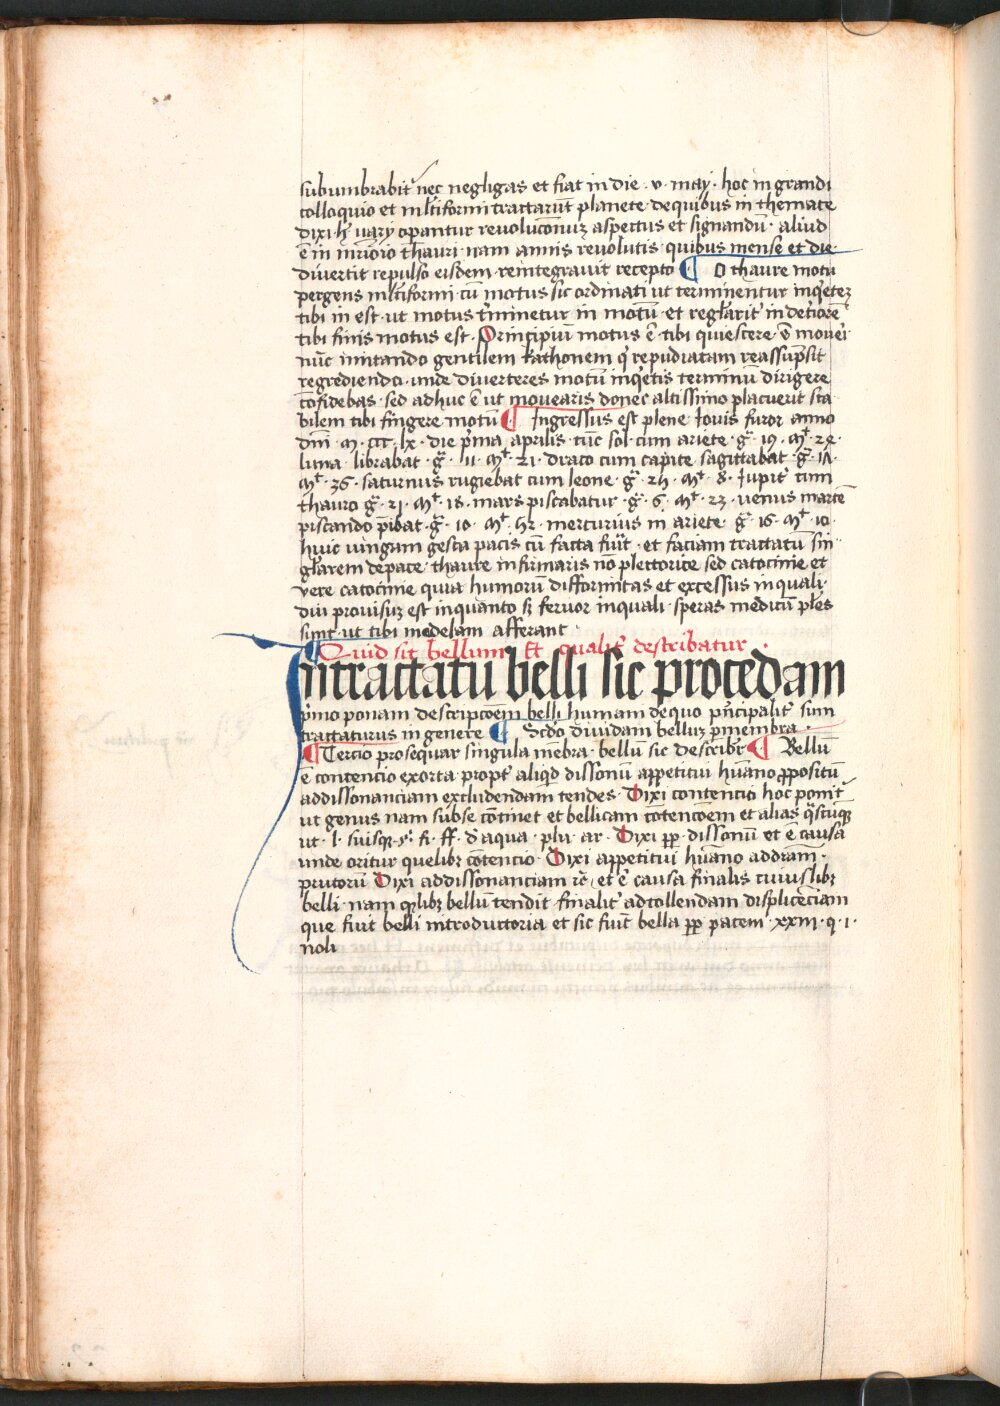 subumbrabit᷒ nec negligas et fiat in die · v · may · hoc in grandi
colloquio et mĺtiformi tractarūt planete de quibus in themate
dixi · ħ vary opantur revolucōnuꝫ aspectus et signandū · aliud
ē in inrioīo thauri · nam annis revolutis quibus mense et die
divertit repulso eisdem reintegravit recepto ¶ O thaure motu
pergens mĺtiformi cū motus sic ordinati ut terminentur inq̇etez
tibi in est · ut motus tminetur in motū · et reglarit᷒ in detiorē
tibi finis motus est · Principiū motus ē tibi quiescere · ē mover᷒
nūc imitando gentilem kathonem q̇ repudiatam reassūpsit
regrediendo · unde diverteres motū inq̇etis terminū dirigere
cōfidebas · sed adhuc ē ut movearis donec altissimo placuerit sta
bilem tibi fingere motū ¶ Ingressus est plene Iovis furor anno
dm̄i · M · ccc · lx · die p̄ma aprilis · tūc sol cum ariete · g̃ · 19 · Mᵗ · 28 ·
luna · librabat · g̃ · 11 · Mᵗ · 21 · draco cum capite sagittabat · g̃ · 18 ·
Mᵗ · 36 · saturnus rugiebat cum leone · g̃ · 24 · Mᵗ · 8 · Jupit᷒ cum
thauro g̃ · 21 · Mᵗ · 18 · mars piscabatur · g̃ · 6 · Mᵗ · 23 · venus martē
piscando p̄ibat · g̃ · 10 · Mᵗ · 42 · mercurius in ariete g̃ · 16 · Mᵗ · 10 ·
huic iungam gesta pacis cū facta fūt᷒ · et faciam tractatū sin
glarem de pace · thaure infirmaris nō plectorice sed catocinie et
vere catocinie quia humorū difformitas et excessus in quali
dui provisuꝫ est in quanto sꝫ fervor in quali · speras medicū ples
sint · ut tibi medelam afferant ·
Quid sit bellum Et qualit᷒ describatur ·
In tractatu belli sic procedam
p̄mo ponam descripcōem belli humani de quo p̄ncipalit᷒ sum
tractaturus in genere ¶ Scd̄o dividam belluꝫ p̄ membra ·
¶ Tercio prosequar singula mēbra · bellū sic describr᷒ ¶ Bellū
ē contencio exorta propt᷒ aliq̇d dissonū appetitui hūano ꝓpositū
ad dissonanciam excludendam tēdes · Dixi contencio hoc ponit᷒
ut genus nam sub se cōtinet et bellicam cōtencōem et alias q̇scūqꝫ
ut · l · suisqꝫ · ẏ · fi · ff · d᷒ aqua · plu · ar · Dixi ꝑꝑ dissonū et ē causa
unde oritur quelibꝫ cōtencio · Dixi appetitui hūano ad dr̄am ·
prutorū Dixi ad dissonanciam rc̄ · et ē causa finalis cuiuslibꝫ
belli · nam q̇libꝫ bellū tendit finalit᷒ ad tollendam displicēciam
que fuit belli introductoria et sic fiūt bella ꝑꝑ pacem · xxiii · q · i ·
noli